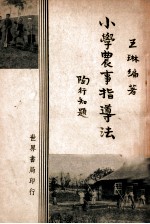 王琳編著
小學農事指導法
陶行知題
世界書局印行